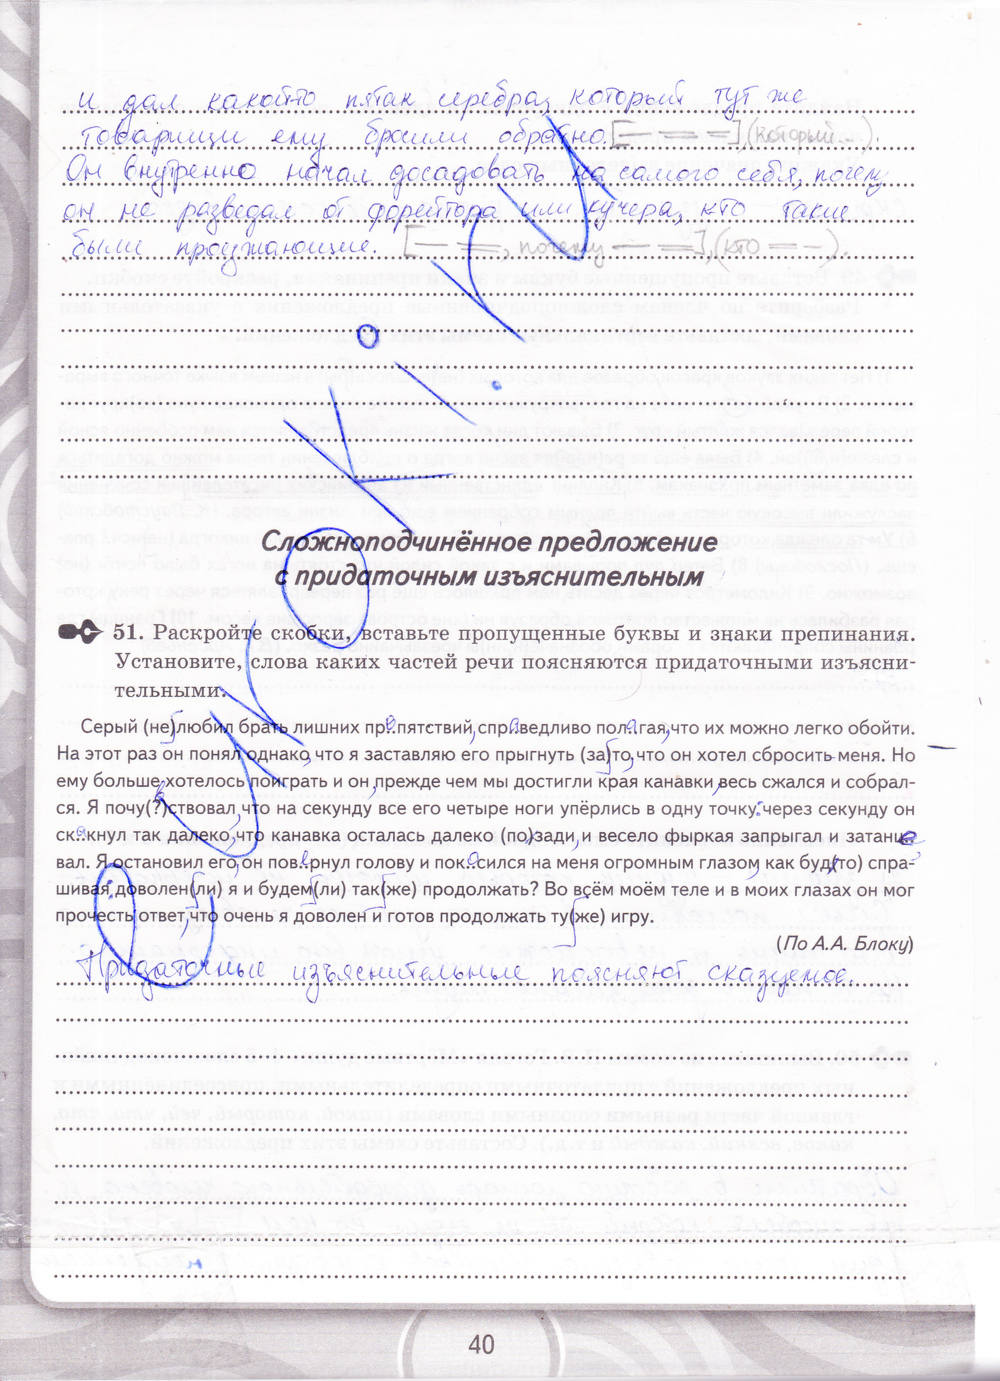 и дал какой-то пятак серебра, который тут же
товарищи ему бросили обратно. [— = =], (который...).
Он внутренно начал досадовать на самого себя, почему
он не разведал от форейтора или кучера, кто такие
были проезжающие. [— =, почему — =], (кто = —).
Сложноподчинённое предложение
с придаточным изъяснительным
51. Раскройте скобки, вставьте пропущенные буквы и знаки препинания.
Установите, слова каких частей речи поясняются придаточными изъясни-
тельными.
Серый (не)любил брать лишних препятствий, справедливо полагая, что их можно легко обойти.
На этот раз он понял однако, что я заставляю его прыгнуть (за)то, что он хотел сбросить меня. Но
ему больше хотелось поиграть и он, прежде чем мы достигли края канавки, весь сжался и собрал-
ся. Я почу(?)вствовал, что на секунду все его четыре ноги упёрлись в одну точку: через секунду он
скакнул так далеко, что канавка осталась далеко (по)зади, и весело фыркая запрыгал и затанце
вал. Я остановил его, он повернул голову и покосился на меня огромным глазом, как буд(то) спра-
шивая, доволен(ли) я и будем(ли) так(же) продолжать? Во всём моём теле и в моих глазах он мог
прочесть ответ, что очень я доволен и готов продолжать ту(же) игру.
(По А.А. Блоку)
Придаточные изъяснительные поясняют сказуемое.
40